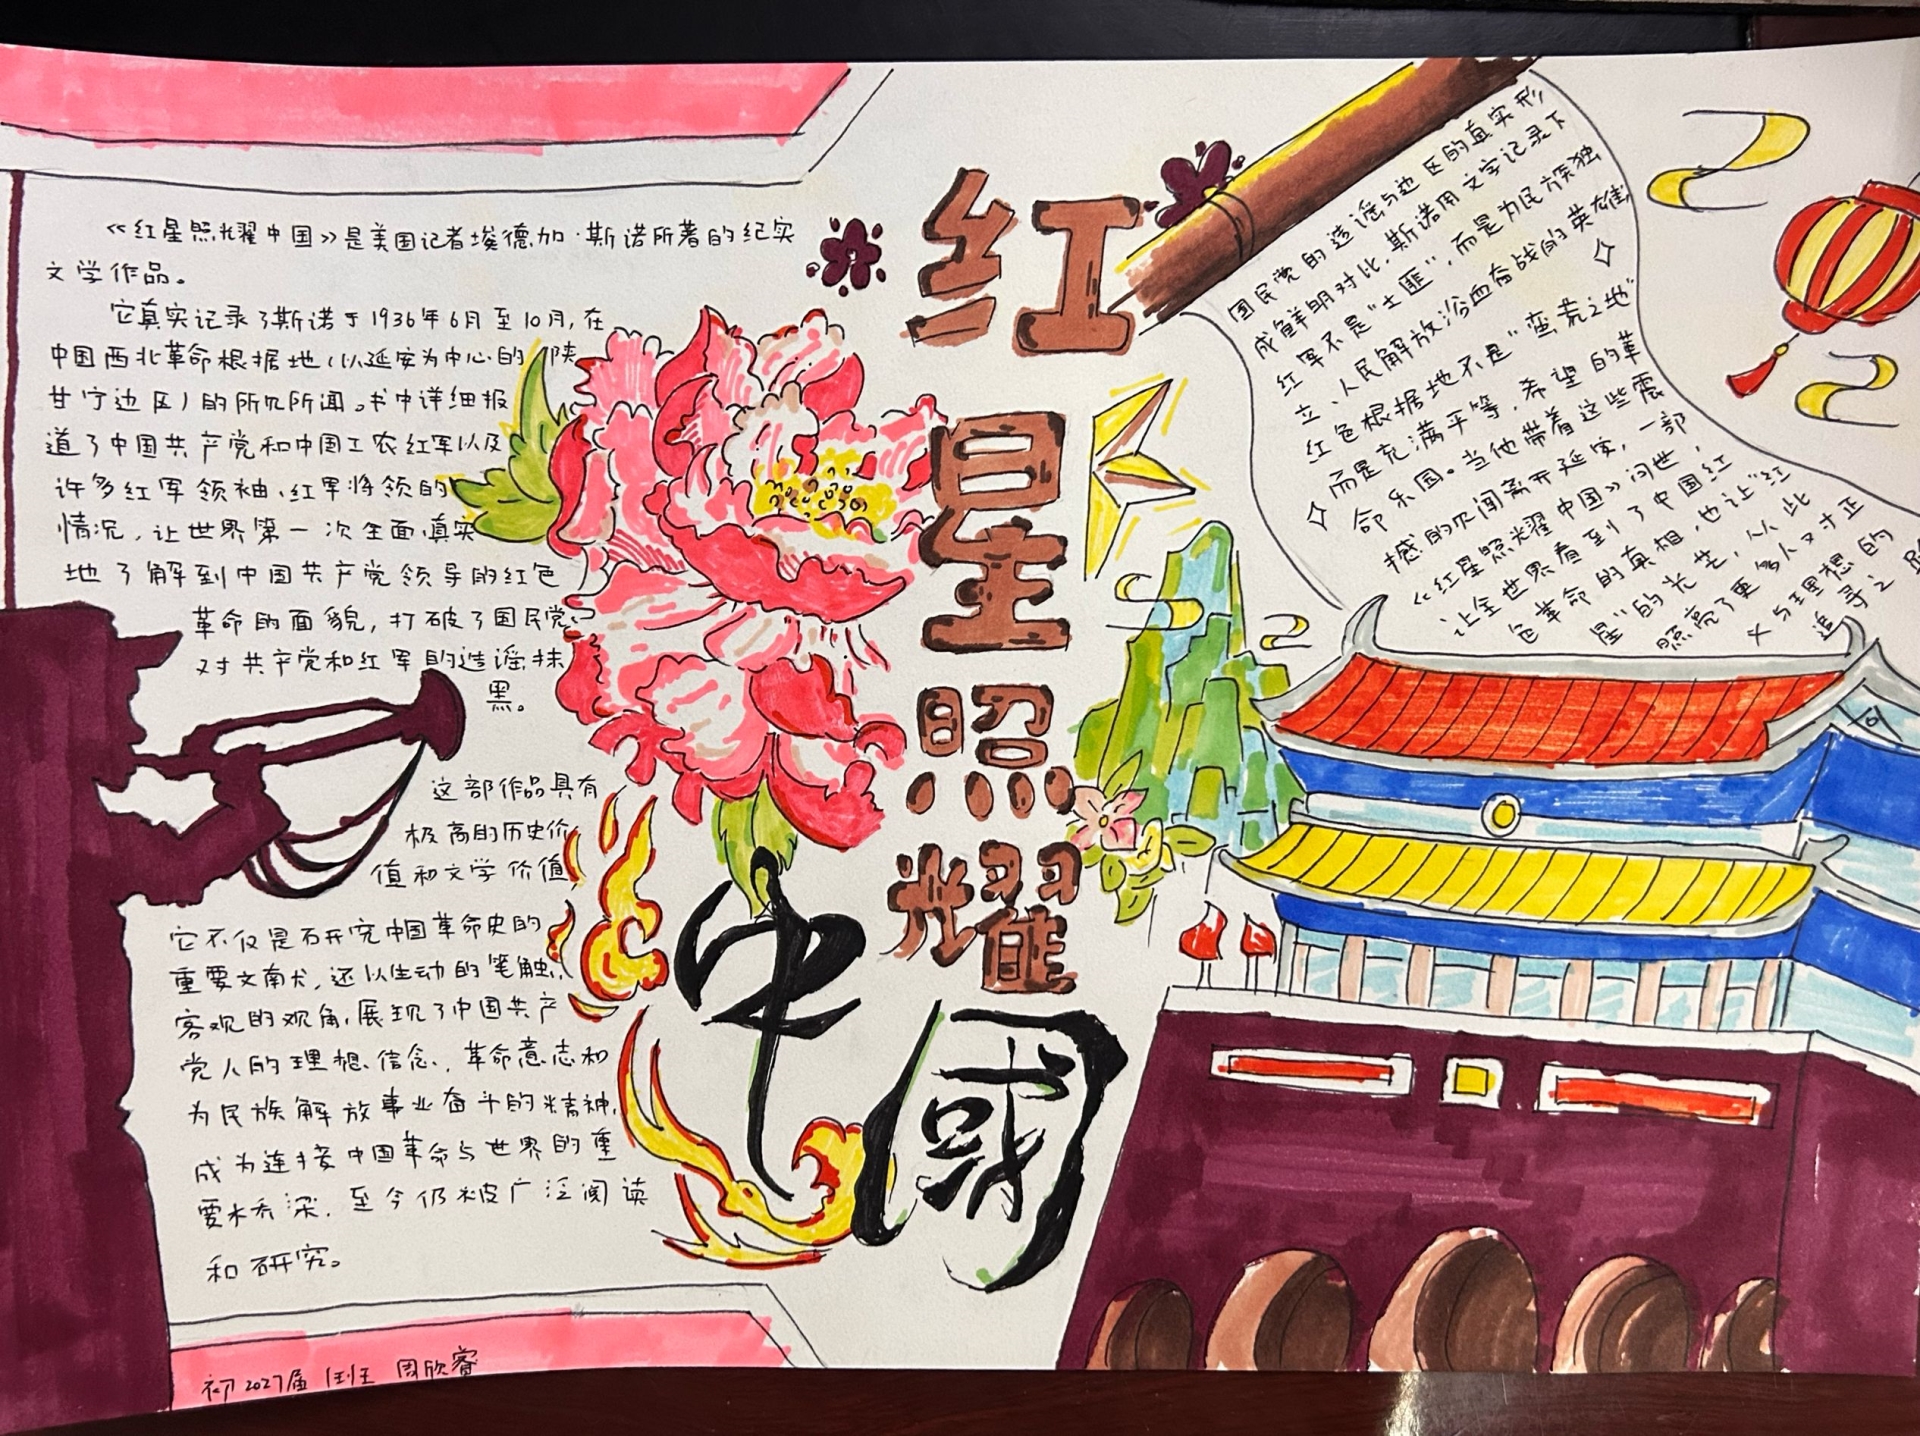 《红星照耀中国》是美国记者埃德加·斯诺所著的纪实
文学作品。
它真实记录了斯诺于1936年6月至10月,在
中国西北革命根据地(以延安为中心的陕
甘宁边区)的所见所闻。书中详细报
道了中国共产党和中国工农红军以及
许多红军领袖、红军将领的
情况,让世界第一次全面、真实
地了解到中国共产党领导的红色
革命的面貌,打破了国民党
对共产党和红军的造谣、抹
黑。
这部作品具有
极高的历史价
值和文学价值,
它不仅是研究中国革命史的
重要文献,还以生动的笔触、
客观的视角,展现了中国共产
党人的理想、信念、革命意志和
为民族解放事业奋斗的精神,
成为连接中国革命与世界的重
要桥梁,至今仍被广泛阅读
和研究。
初2027届 1班 周欣睿
红
星
照
耀
中
國
国民党的造谣与边区的真实形
成鲜明对比,斯诺用文字记录下
红军不是"土匪",而是为民族独
立、人民解放浴血奋战的英雄;
红色根据地不是"蛮荒之地"
而是充满平等、希望的革
命乐园。当他带着这些震
撼的见闻离开延安,一部
《红星照耀中国》问世,
让全世界看到了中国红
色革命的真相,也让"红
星"的光芒,从此
照亮了更多人对正
义与理想的
追寻之